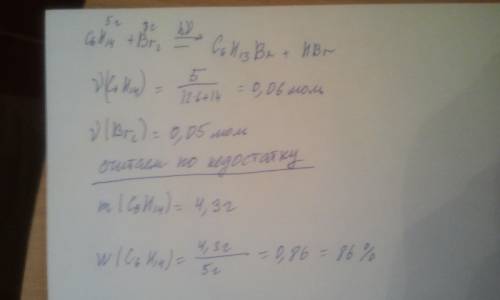 5г 8г
C₆H₁₄ + Br₂ hν → C₆H₁₃Br + HBr
ν(C₆H₁₄) = 5 / 12·6+14 = 0,06 моль
ν(Br₂) = 0,05 моль
считаем по недостатку
m(C₆H₁₄) = 4,3г
w(C₆H₁₄) = 4,3г / 5г = 0,86 = 86%